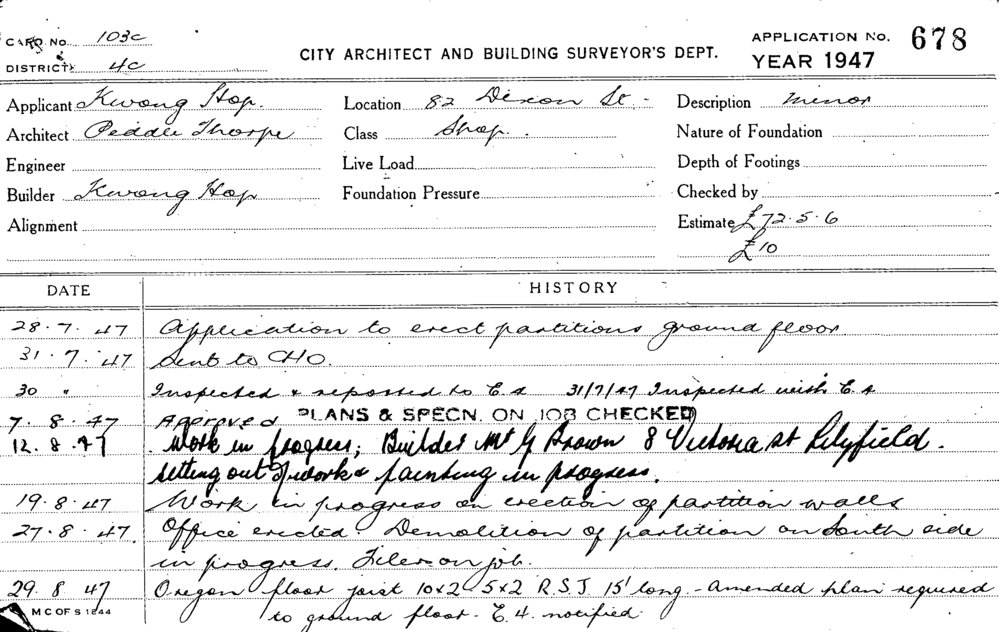 CARD No. 103c
DISTRICT 4C
CITY ARCHITECT AND BUILDING SURVEYOR'S DEPT.
APPLICATION No. 678
YEAR 1947
Applicant Kwong Hop.
Location 82 Dixon St.
Description minor
Architect Peddle Thorpe
Class Shop.
Nature of Foundation
Engineer
Live Load
Depth of Footings
Builder Kwong Hop
Foundation Pressure
Checked by
Alignment
Estimate £72.5.6
£10
DATE HISTORY
28.7.47 Application to erect partitions ground floor
31.7.47 Sent to CHO.
30 " Inspected & reported to E.4 31/7/47 Inspected with E.4
7.8.47 Approved PLANS & SPECN. ON JOB CHECKED
12.8.47 Work in progress; Builder Mr G Brown 8 Victoria St Lilyfield.
Setting out of work & painting in progress.
19.8.47 Work in progress on erection of partition walls
27.8.47. Office erected. Demolition of partition on South side
in progress. Tilers on job.
29.8.47 Oregon floor joist 10x2 5x2 R.S.J. 15' long. - Amended plan required
to ground floor. E.4. notified.
M C OF S 1844